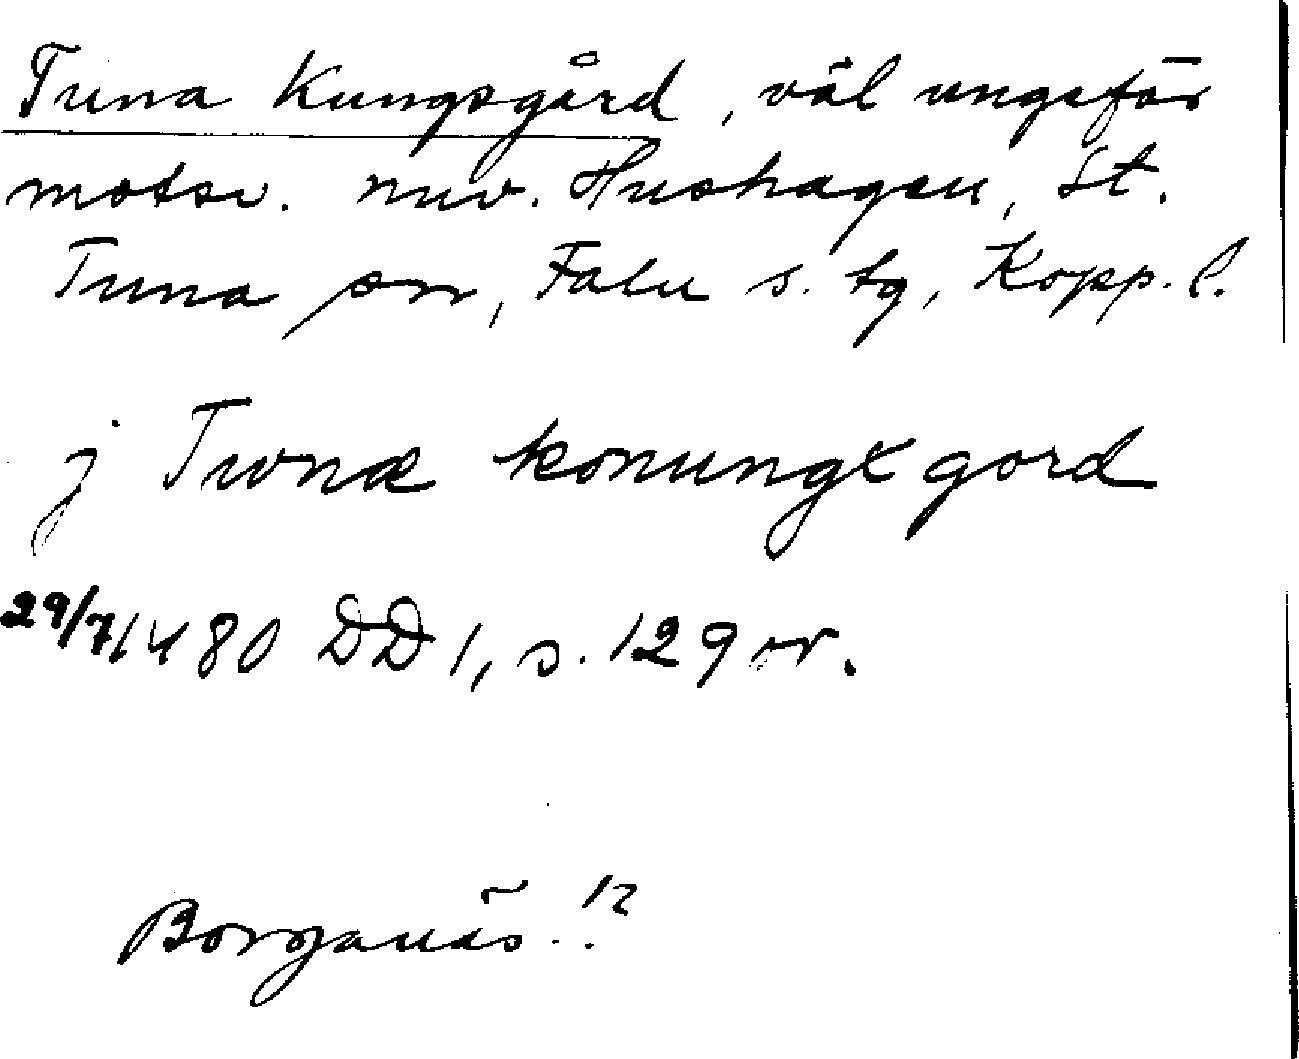 Tuna Kungsgård, väl ungefär
motsv. nuv. Hushagen, St.
Tuna sn, Falu s. tg, Kopp. l.
j Twnæ konungx gord
29/7 1480 DD 1, s. 129 or.
Borganäs!?